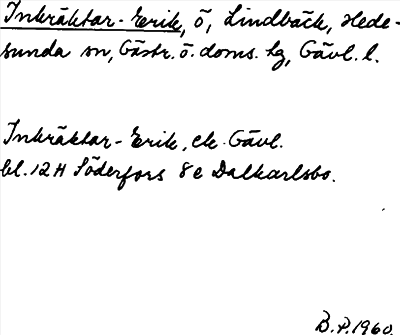 Inkräktar-Erik, ö, Lindbäck, Hede-
sunda sn, Gästr. ö. doms. hg, Gävl. l.
Inkräktar-Erik, ek. Gävl.
bl. 12 H Söderfors 8 e Dalkarlsbo.
B.P. 1960.